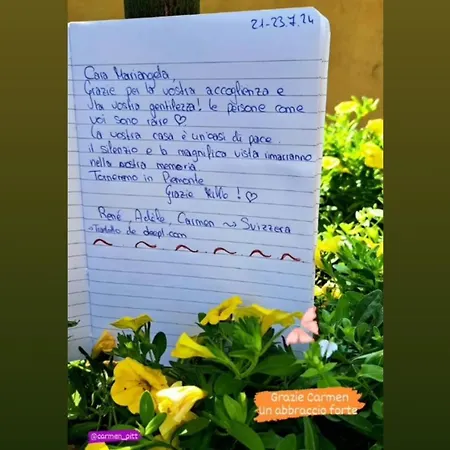 21-23.7.24
Cara Mariangela,
Grazie per la vostra accoglienza e
la vostra gentilezza! le persone come
voi sono rare ♡
La vostra casa è un'oasi di pace.
il silenzio e la magnifica vista rimarranno
nella nostra memoria
Torneremo in Piemonte
Grazie mille! ♡
René, Adèle, Carmen ~> Svizzera
→Tradotto da deepl.com
Grazie Carmen
un abbraccio forte
@carmen_pitt